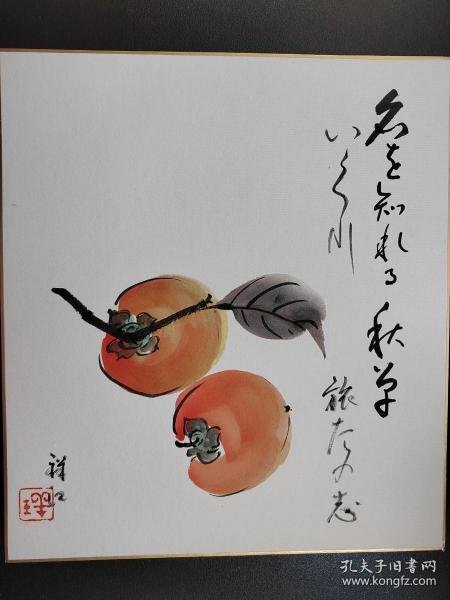 名を知れる秋草
いく川
旅たの志
孔夫子旧书网
www.kongfz.com